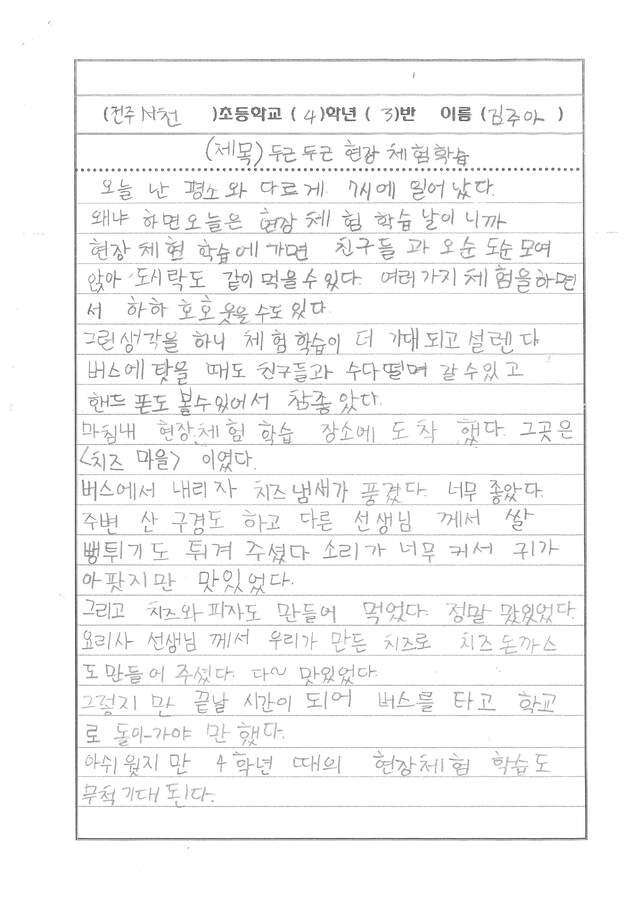 (전주서천 )초등학교 ( 4 )학년 ( 3 )반 이름 (김주아 )
(제목) 두근두근 현장 체험학습
오늘 난 평소와 다르게 7시에 일어났다.
왜냐 하면 오늘은 현장 체험 학습 날이니까
현장 체험 학습에 가면 친구들과 오순도순 모여
앉아 도시락도 같이 먹을 수 있다. 여러가지 체험을 하면
서 하하 호호 웃을 수도 있다.
그런 생각을 하니 체험 학습이 더 기대되고 설렌다
버스에 탔을 때도 친구들과 수다떨며 갈 수 있고
핸드폰도 볼 수 있어서 참 좋았다.
마침내 현장 체험 학습 장소에 도착 했다. 그곳은
<치즈 마을> 이였다.
버스에서 내리자 치즈 냄새가 풍겼다. 너무 좋았다.
주변 산 구경도 하고 다른 선생님 께서 쌀
뻥튀기도 튀겨 주셨다 소리가 너무 커서 귀가
아팟지만 맛있었다.
그리고 치즈와 피자도 만들어 먹었다. 정말 맜있었다.
요리사 선생님 께서 우리가 만든 치즈로 치즈 돈까스
도 만들어 주셨다. 다~ 맛있었다.
그렇지만 끝날 시간이 되어 버스를 타고 학교
로 돌아가야 만 했다.
아쉬웠지만 4학년 때의 현장체험 학습도
무척 기대 된다.